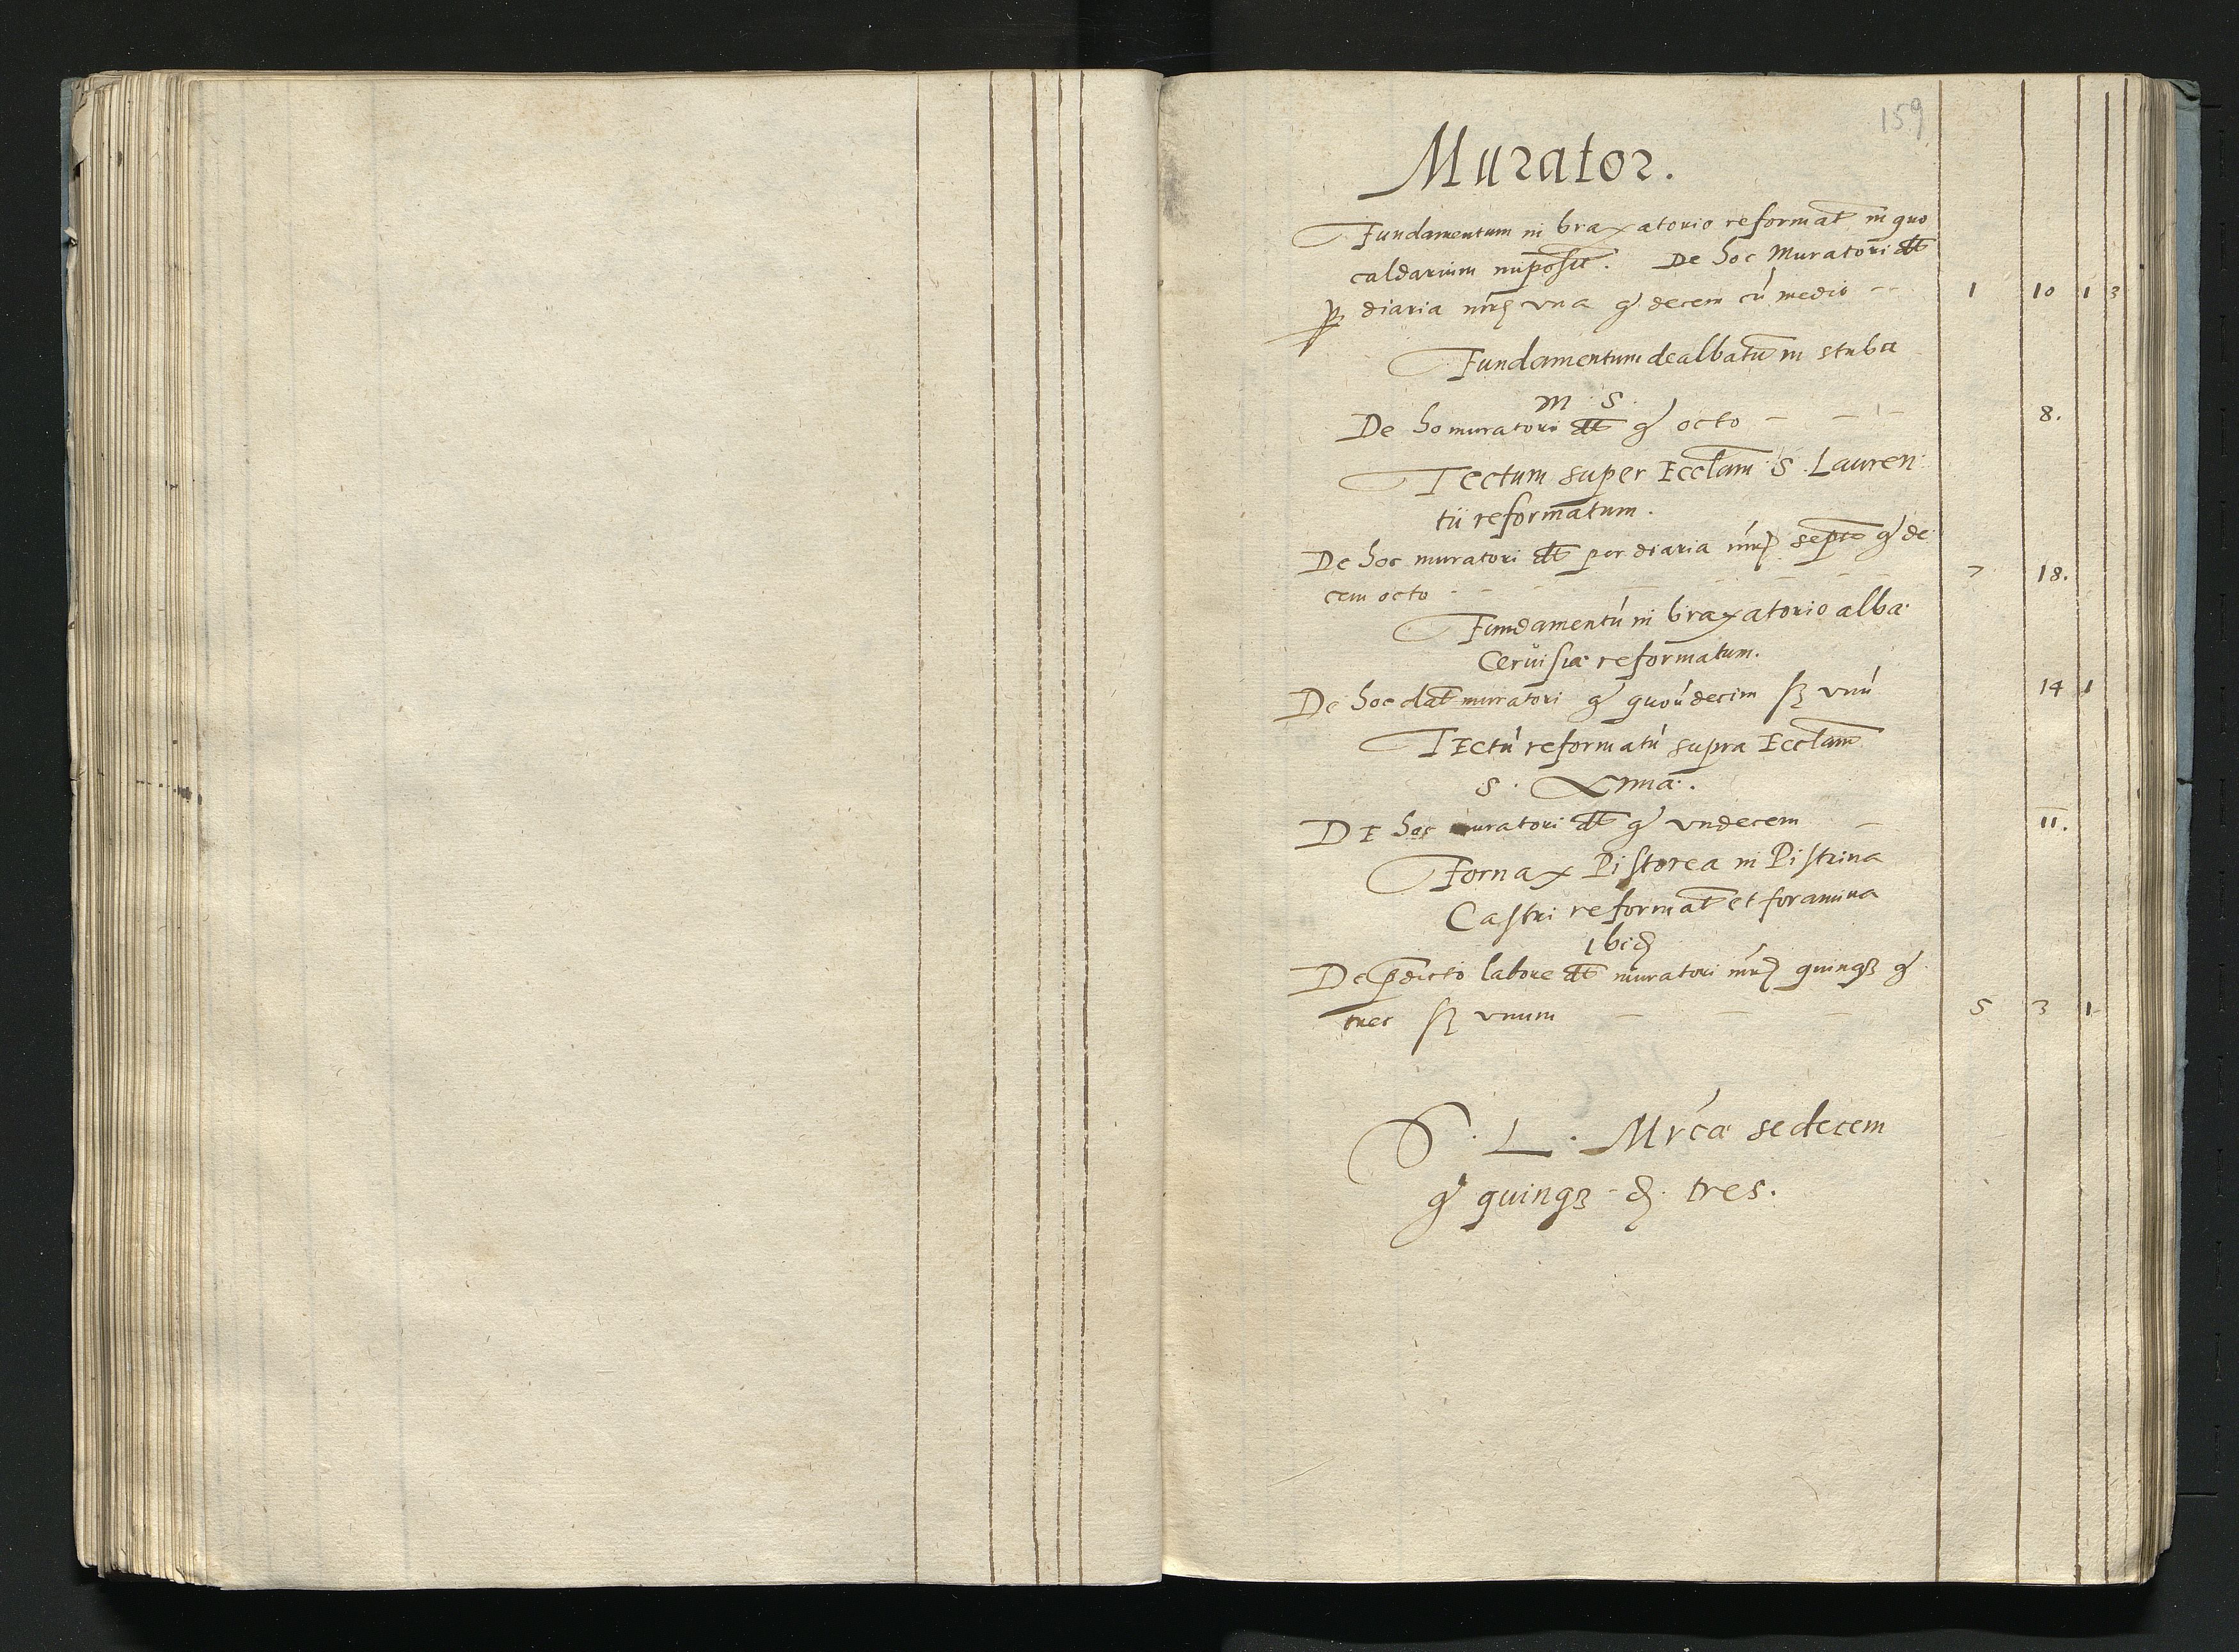 159
Murator.
Fundamentum in braxatorio reformat̄ in quo
caldarium imposit̄. De hoc Muratori dt̄
ꝑ diaria mrc̨ vna gͦ decem cū medio - - 1 10 1 3
Fundamentum dealbatū in stuba
M. S.
De ho muratori dt̄ gͦ octo - - - 8.
Tectum super Eccl̄am S. Lauren
tii reformatum.
De hoc muratori dt̄ per diaria mrc̨ septē gͦ de
cem octo - - - - - - 7 18.
Fundamentū in braxatorio alba
Cervisiæ reformatum.
De hoc dat̄ muratori gͦ quoūdecim ſꝫ vnū 14 1
TEctū reformatū supra Eccl̄am
S.
DE hoc muratori dt̄ gͦ vndecem - 11.
Fornax Pistorea in Pistrina
Castri reformat̄ et foramina
Ibid̨
De p̄dicto labore dt̄ muratori mrc̨ quinqꝫ gͦ
tres ſꝫ vnum - - - 5 3 1
S. L. Mrcæ sedecem
gͦ quinqꝫ. d̨. tres.